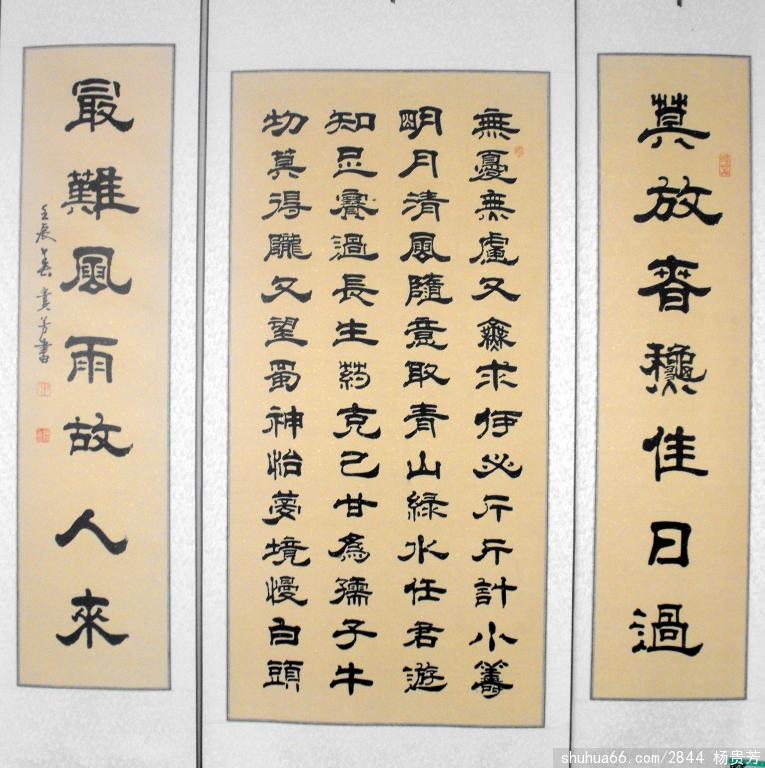 莫放春龝佳日過
無憂無慮又無求何必斤斤計小籌
明月清風隨意取青山綠水任君遊
知足賽過長生葯克己甘為孺子牛
切莫得隴又望蜀神怡夢境慢白頭
最難風雨故人來
壬辰春貴芳書
shuhua66.com/2844 杨贵芳